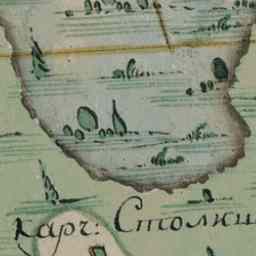 карч: Столки